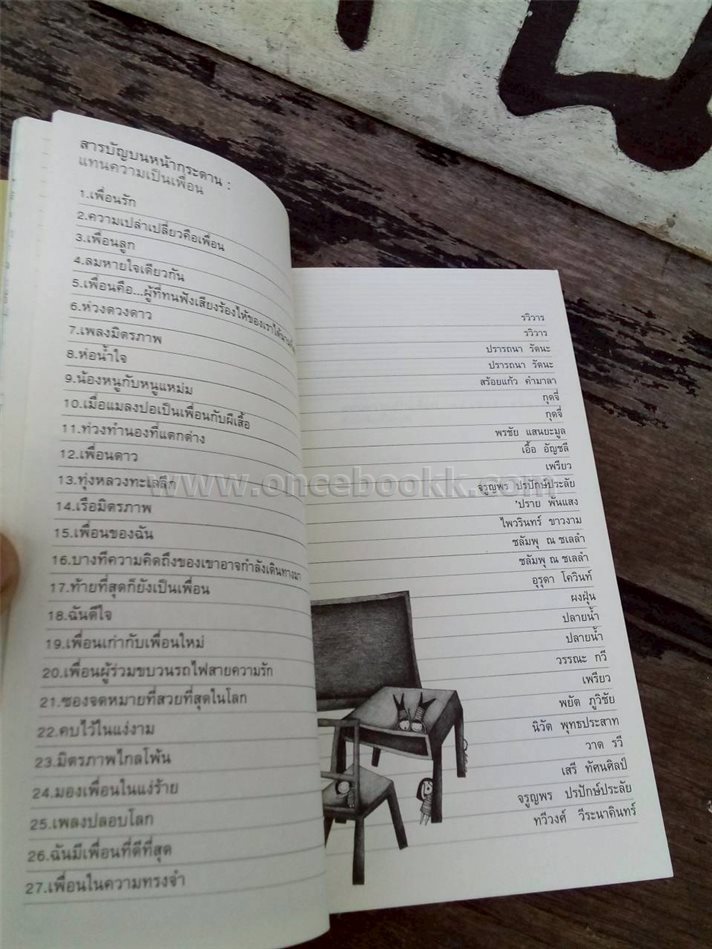 สารบัญบนหน้ากระดาน :
แทนความเป็นเพื่อน
1.เพื่อนรัก
2.ความเปล่าเปลี่ยวคือเพื่อน
3.เพื่อนลูก
4.ลมหายใจเดียวกัน
5.เพื่อนคือ...ผู้ที่ทนฟังเสียงร้องไห้ของเราได้
6.ห่วงดวงดาว
7.เพลงมิตรภาพ
8.ห่อน้ำใจ
9.น้องหนูกับหนูแหม่ม
10.เมื่อแมลงปอเป็นเพื่อนกับผีเสื้อ
11.ท่วงทำนองที่แตกต่าง
12.เพื่อนดาว
13.ทุ่งหลวงทะเลลึก
14.เรือมิตรภาพ
15.เพื่อนของฉัน
16.บางทีความคิดถึงของเขาอาจกำลังเดินทางมา
17.ท้ายที่สุดก็ยังเป็นเพื่อน
18.ฉันดีใจ
19.เพื่อนเก่ากับเพื่อนใหม่
20.เพื่อนผู้ร่วมขบวนรถไฟสายความรัก
21.ซองจดหมายที่สวยที่สุดในโลก
22.คบไว้ในแง่งาม
23.มิตรภาพไกลโพ้น
24.มองเพื่อนในแง่ร้าย
25.เพลงปลอบโลก
26.ฉันมีเพื่อนที่ดีที่สุด
27.เพื่อนในความทรงจำ
รวิวาร
รวิวาร
ปรารถนา รัตนะ
ปรารถนา รัตนะ
สร้อยแก้ว คำมาลา
กุดจี่
กุดจี่
พรชัย แสนยะมูล
เอื้อ อัญชลี
เพรียว
จรูญพร ปรปักษ์ประลัย
'ปราย พันแสง
ไพวรินทร์ ขาวงาม
ชลัมพุ ณ ชเลลำ
ชลัมพุ ณ ชเลลำ
อุรุดา โควินท์
ผงฝุ่น
ปลายน้ำ
ปลายน้ำ
วรรณะ กวี
เพรียว
พยัต ภูวิชัย
นิวัต พุทธประสาท
วาด รวี
เสรี ทัศนศิลป์
จรูญพร ปรปักษ์ประลัย
ทวีวงศ์ วีระนาคินทร์
www.oncebookk.com